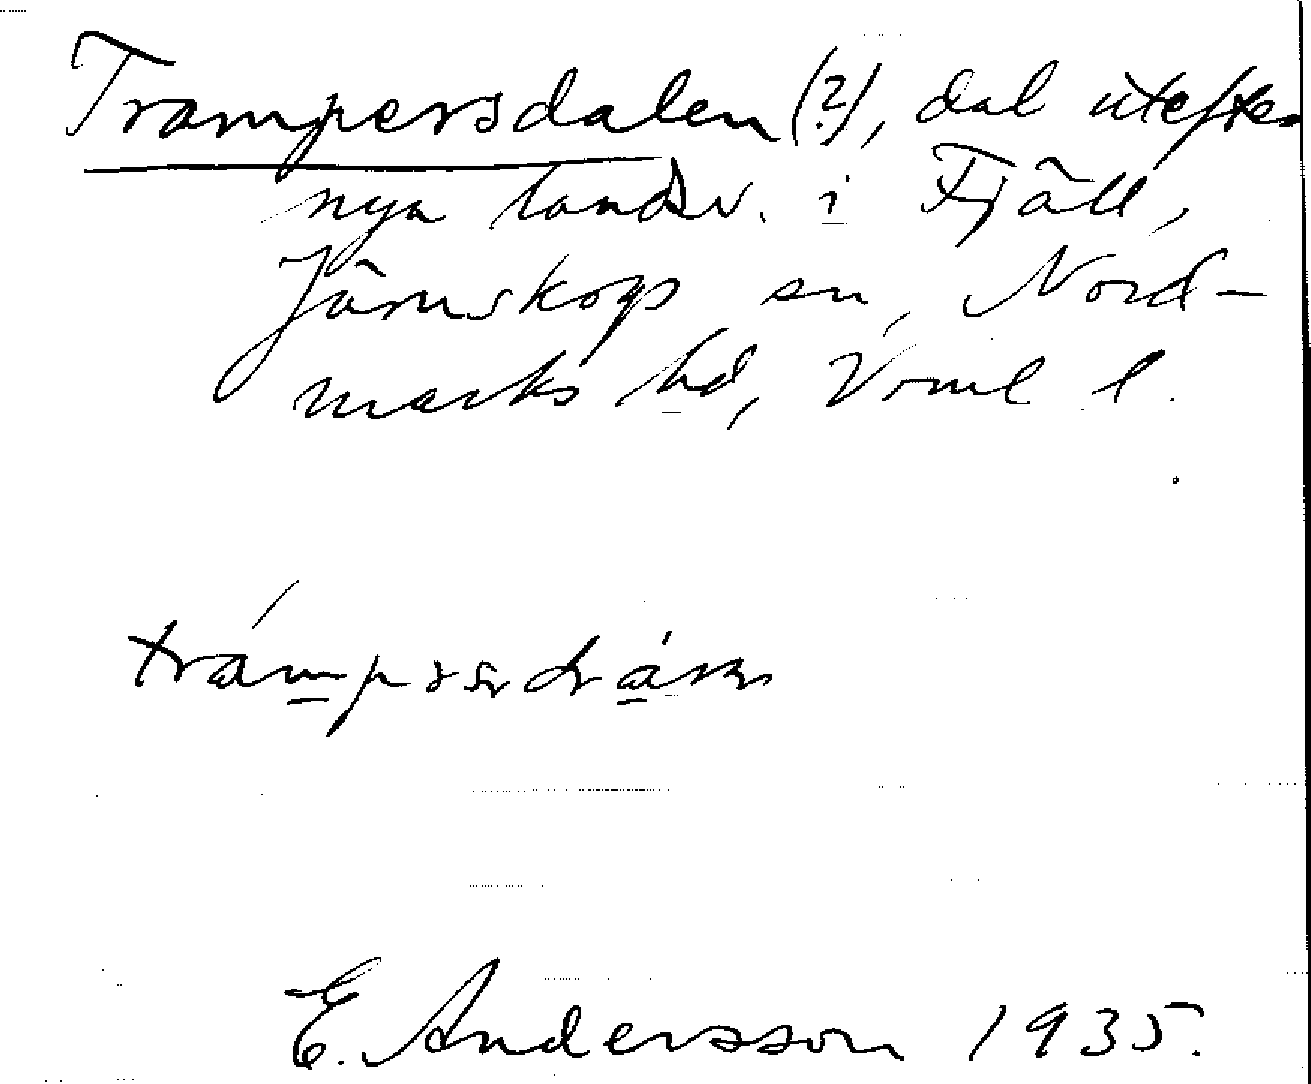 Trampersdalen (?), dal utefter
nya landsv. i Fjäll,
Järnskogs sn, Nord-
marks hd, Vrml l.
E. Andersson 1935.